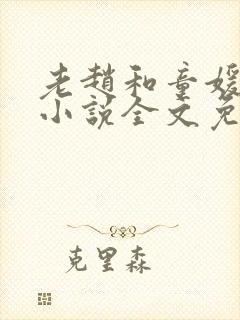 老趙和童媛
小說全文免
克里森